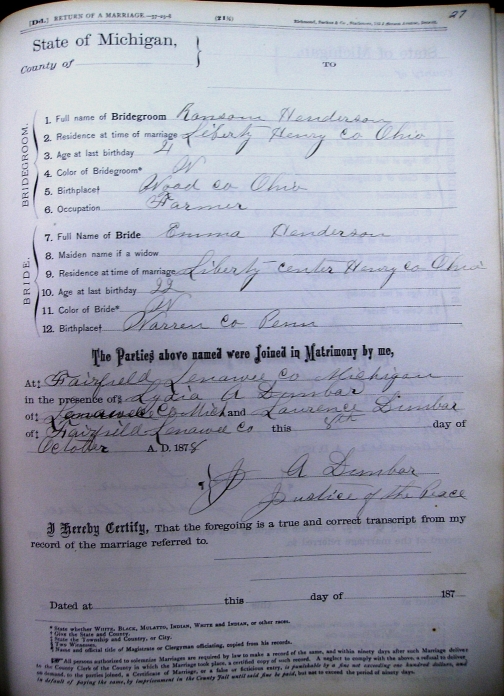 [Dd.] RETURN OF A MARRIAGE.—37-19-8 (218½) 27
State of Michigan,
County of
TO
BRIDEGROOM.
1. Full name of Bridegroom Ransom Henderson
2. Residence at time of marriage Liberty Henry Co Ohio
3. Age at last birthday 21
4. Color of Bridegroom* W
5. Birthplace† Wood Co Ohio
6. Occupation Farmer
BRIDE.
7. Full Name of Bride Emma Henderson
8. Maiden name if a widow
9. Residence at time of marriage Liberty Center Henry Co Ohio
10. Age at last birthday 22
11. Color of Bride* W
12. Birthplace† Warren Co Penn
The Parties above named were Joined in Matrimony by me,
At‡ Fairfield Lenawee Co Michigan
in the presence of§ Lydia A Dunbar
of‡ Lenawee Co Mich and Laurence Dunbar
of‡ Fairfield Lenawee Co this 8th day of
October A. D. 1878
¶ J A Dunbar
Justice of the Peace
I Hereby Certify, That the foregoing is a true and correct transcript from my
record of the marriage referred to.
Dated at this day of 187
* State whether WHITE, BLACK, MULATTO, INDIAN, WHITE and INDIAN, or other races.
† Give the State and County.
‡ State the Township and County, or City.
§ Two Witnesses.
¶ Name and official title of Magistrate or Clergyman officiating, copied from his records.
All persons authorized to solemnize Marriages are required by law to make a record of the same, and within ninety days after such Marriage deliver
to the County Clerk of the County in which the Marriage took place, a certified copy of such record. A neglect to comply with the above, a refusal to deliver,
on demand, to the parties joined, a Certificate of Marriage, or a false or fictitious entry, is punishable by a fine not exceeding one hundred dollars, and
in default of paying the same, by imprisonment in the County Jail until said fine be paid, but not to exceed the period of ninety days.